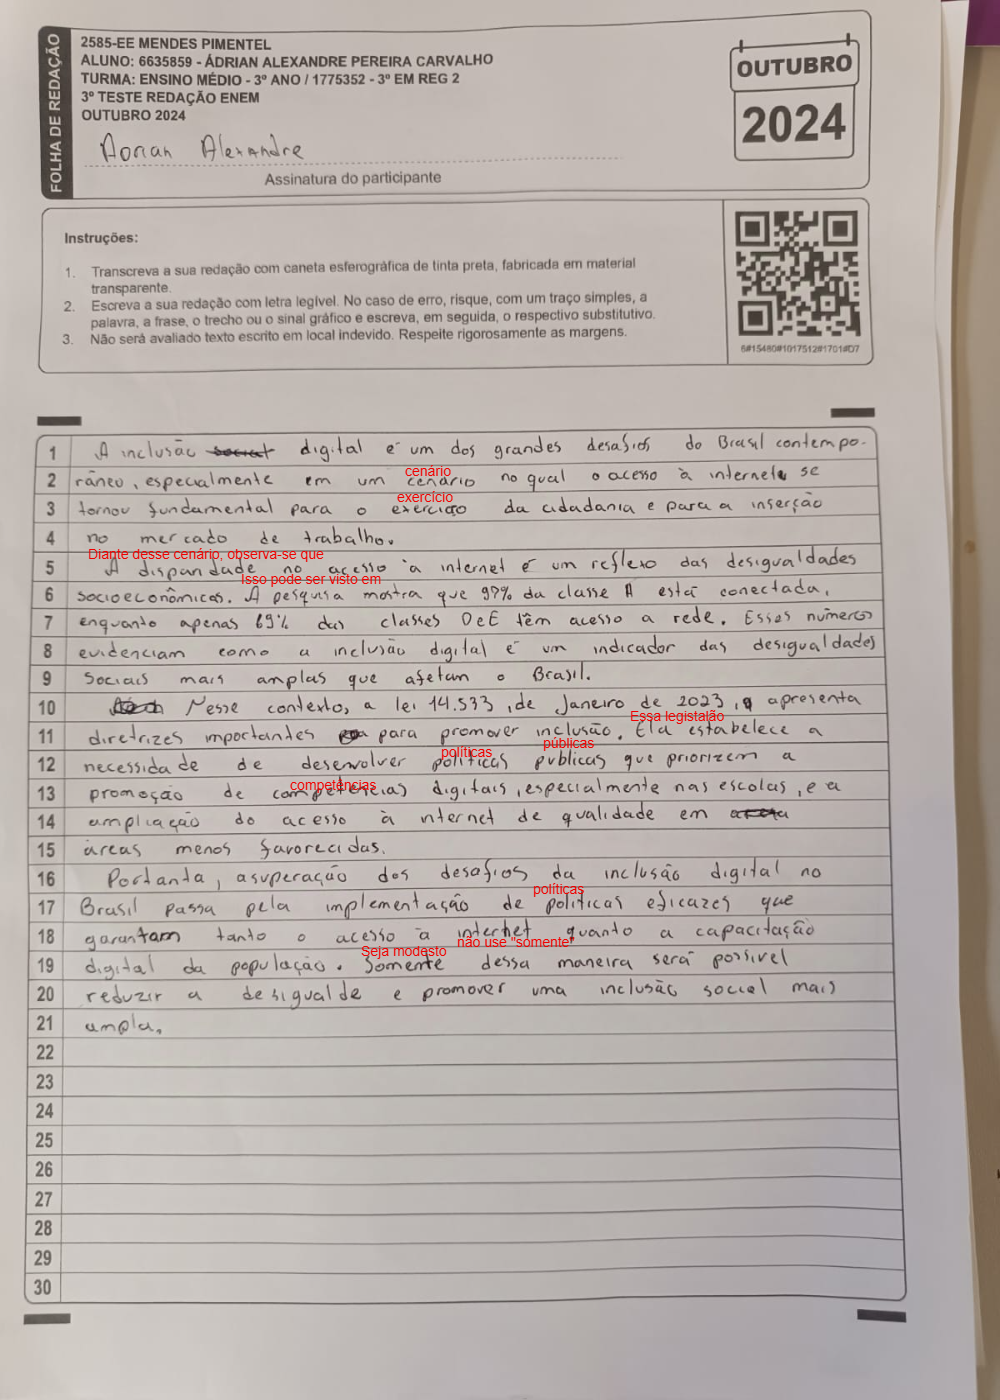 FOLHA DE REDAÇÃO
2585-EE MENDES PIMENTEL
ALUNO: 6635859 - ÁDRIAN ALEXANDRE PEREIRA CARVALHO
TURMA: ENSINO MÉDIO - 3º ANO / 1775352 - 3º EM REG 2
3º TESTE REDAÇÃO ENEM
OUTUBRO 2024
Adrian Alexandre
Assinatura do participante
OUTUBRO
2024
Instruções:
1. Transcreva a sua redação com caneta esferográfica de tinta preta, fabricada em material
transparente.
2. Escreva a sua redação com letra legível. No caso de erro, risque, com um traço simples, a
palavra, a frase, o trecho ou o sinal gráfico e escreva, em seguida, o respectivo substitutivo.
3. Não será avaliado texto escrito em local indevido. Respeite rigorosamente as margens.
6#15480#1017512#1701#D7
1 A inclusão social digital é um dos grandes desafios do Brasil contempo-
cenário
2 râneo, especialmente em um cenário no qual o acesso à internet se
exercício
3 tornou fundamental para o exercício da cidadania e para a inserção
4 no mercado de trabalho.
Diante desse cenário, observa-se que
5 A disparidade no acesso à internet é um reflexo das desigualdades
Isso pode ser visto em
6 socioeconômicas. A pesquisa mostra que 97% da classe A está conectada,
7 enquanto apenas 69% das classes D e E têm acesso a rede. Esses números
8 evidenciam como a inclusão digital é um indicador das desigualdades
9 sociais mais amplas que afetam o Brasil.
10 Nesse contexto, a lei 14.533, de Janeiro de 2023, apresenta
Essa legistalão
11 diretrizes importantes para promover inclusão. Ela estabelece a
políticas públicas
12 necessidade de desenvolver políticas publicas que priorizem a
competências
13 promoção de competências digitais, especialmente nas escolas, e a
14 ampliação do acesso à internet de qualidade em
15 áreas menos favorecidas.
16 Portanta, a superação dos desafios da inclusão digital no
políticas
17 Brasil passa pela implementação de politicas eficazes que
18 garantam tanto o acesso à internet quanto a capacitação
Seja modesto não use "somente"
19 digital da população. Somente dessa maneira será possivel
20 reduzir a desigualde e promover uma inclusão social mais
21 ampla.
22
23
24
25
26
27
28
29
30